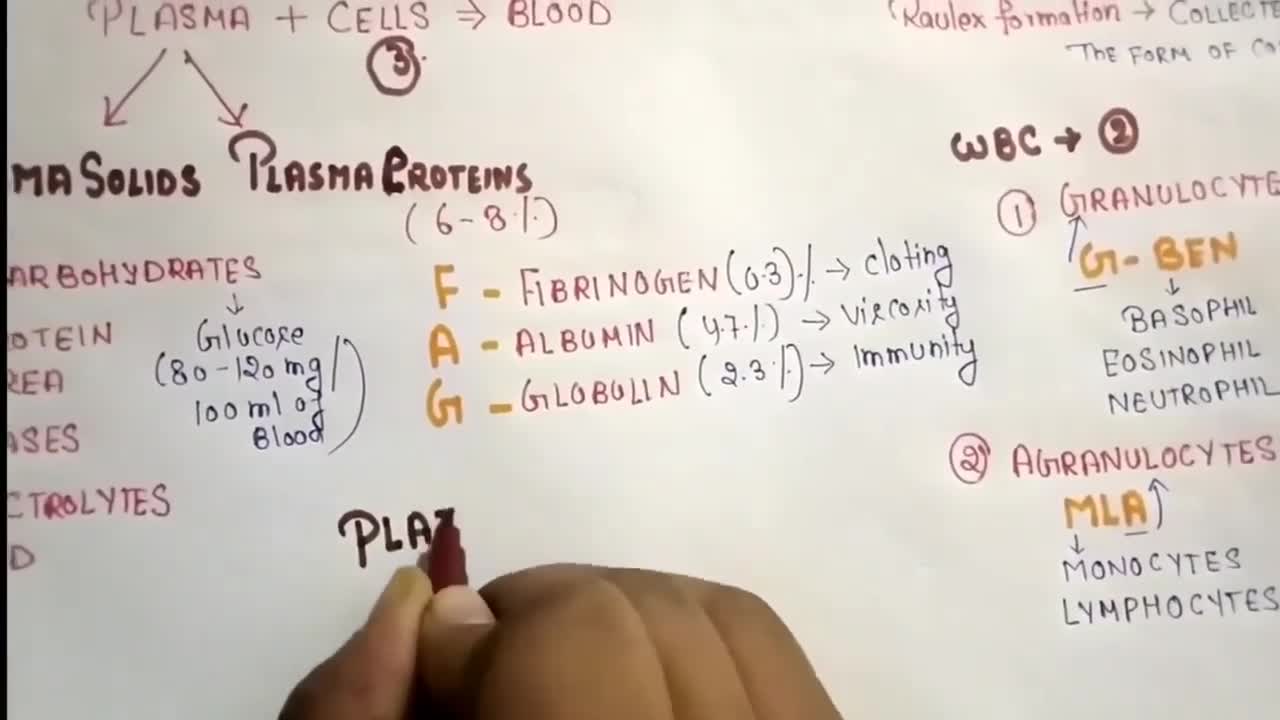 PLASMA + CELLS ⇒ BLOOD
3
MA SOLIDS
PLASMA PROTEINS
(6-8%)
ARBOHYDRATES
↓
Glucose
(80-120 mg/
100 ml of
Blood)
OTEIN
REA
ASES
CTROLYTES
D
F - FIBRINOGEN (0.3)% → cloting
A - ALBUMIN (4.7%) → viscosity
G - GLOBULIN (2.3%) → Immunity
PLA
Raulex formation → COLLECTE
THE FORM OF CO
WBC → 2
1 GRANULOCYTE
G - BEN
↓
BASOPHIL
EOSINOPHIL
NEUTROPHIL
2 AGRANULOCYTES
MLA
↓
MONOCYTES
LYMPHOCYTES